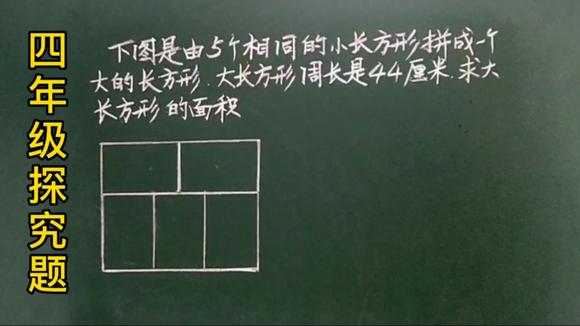 四年级探究题
下图是由5个相同的小长方形拼成一个
大的长方形.大长方形周长是44厘米.求大
长方形的面积